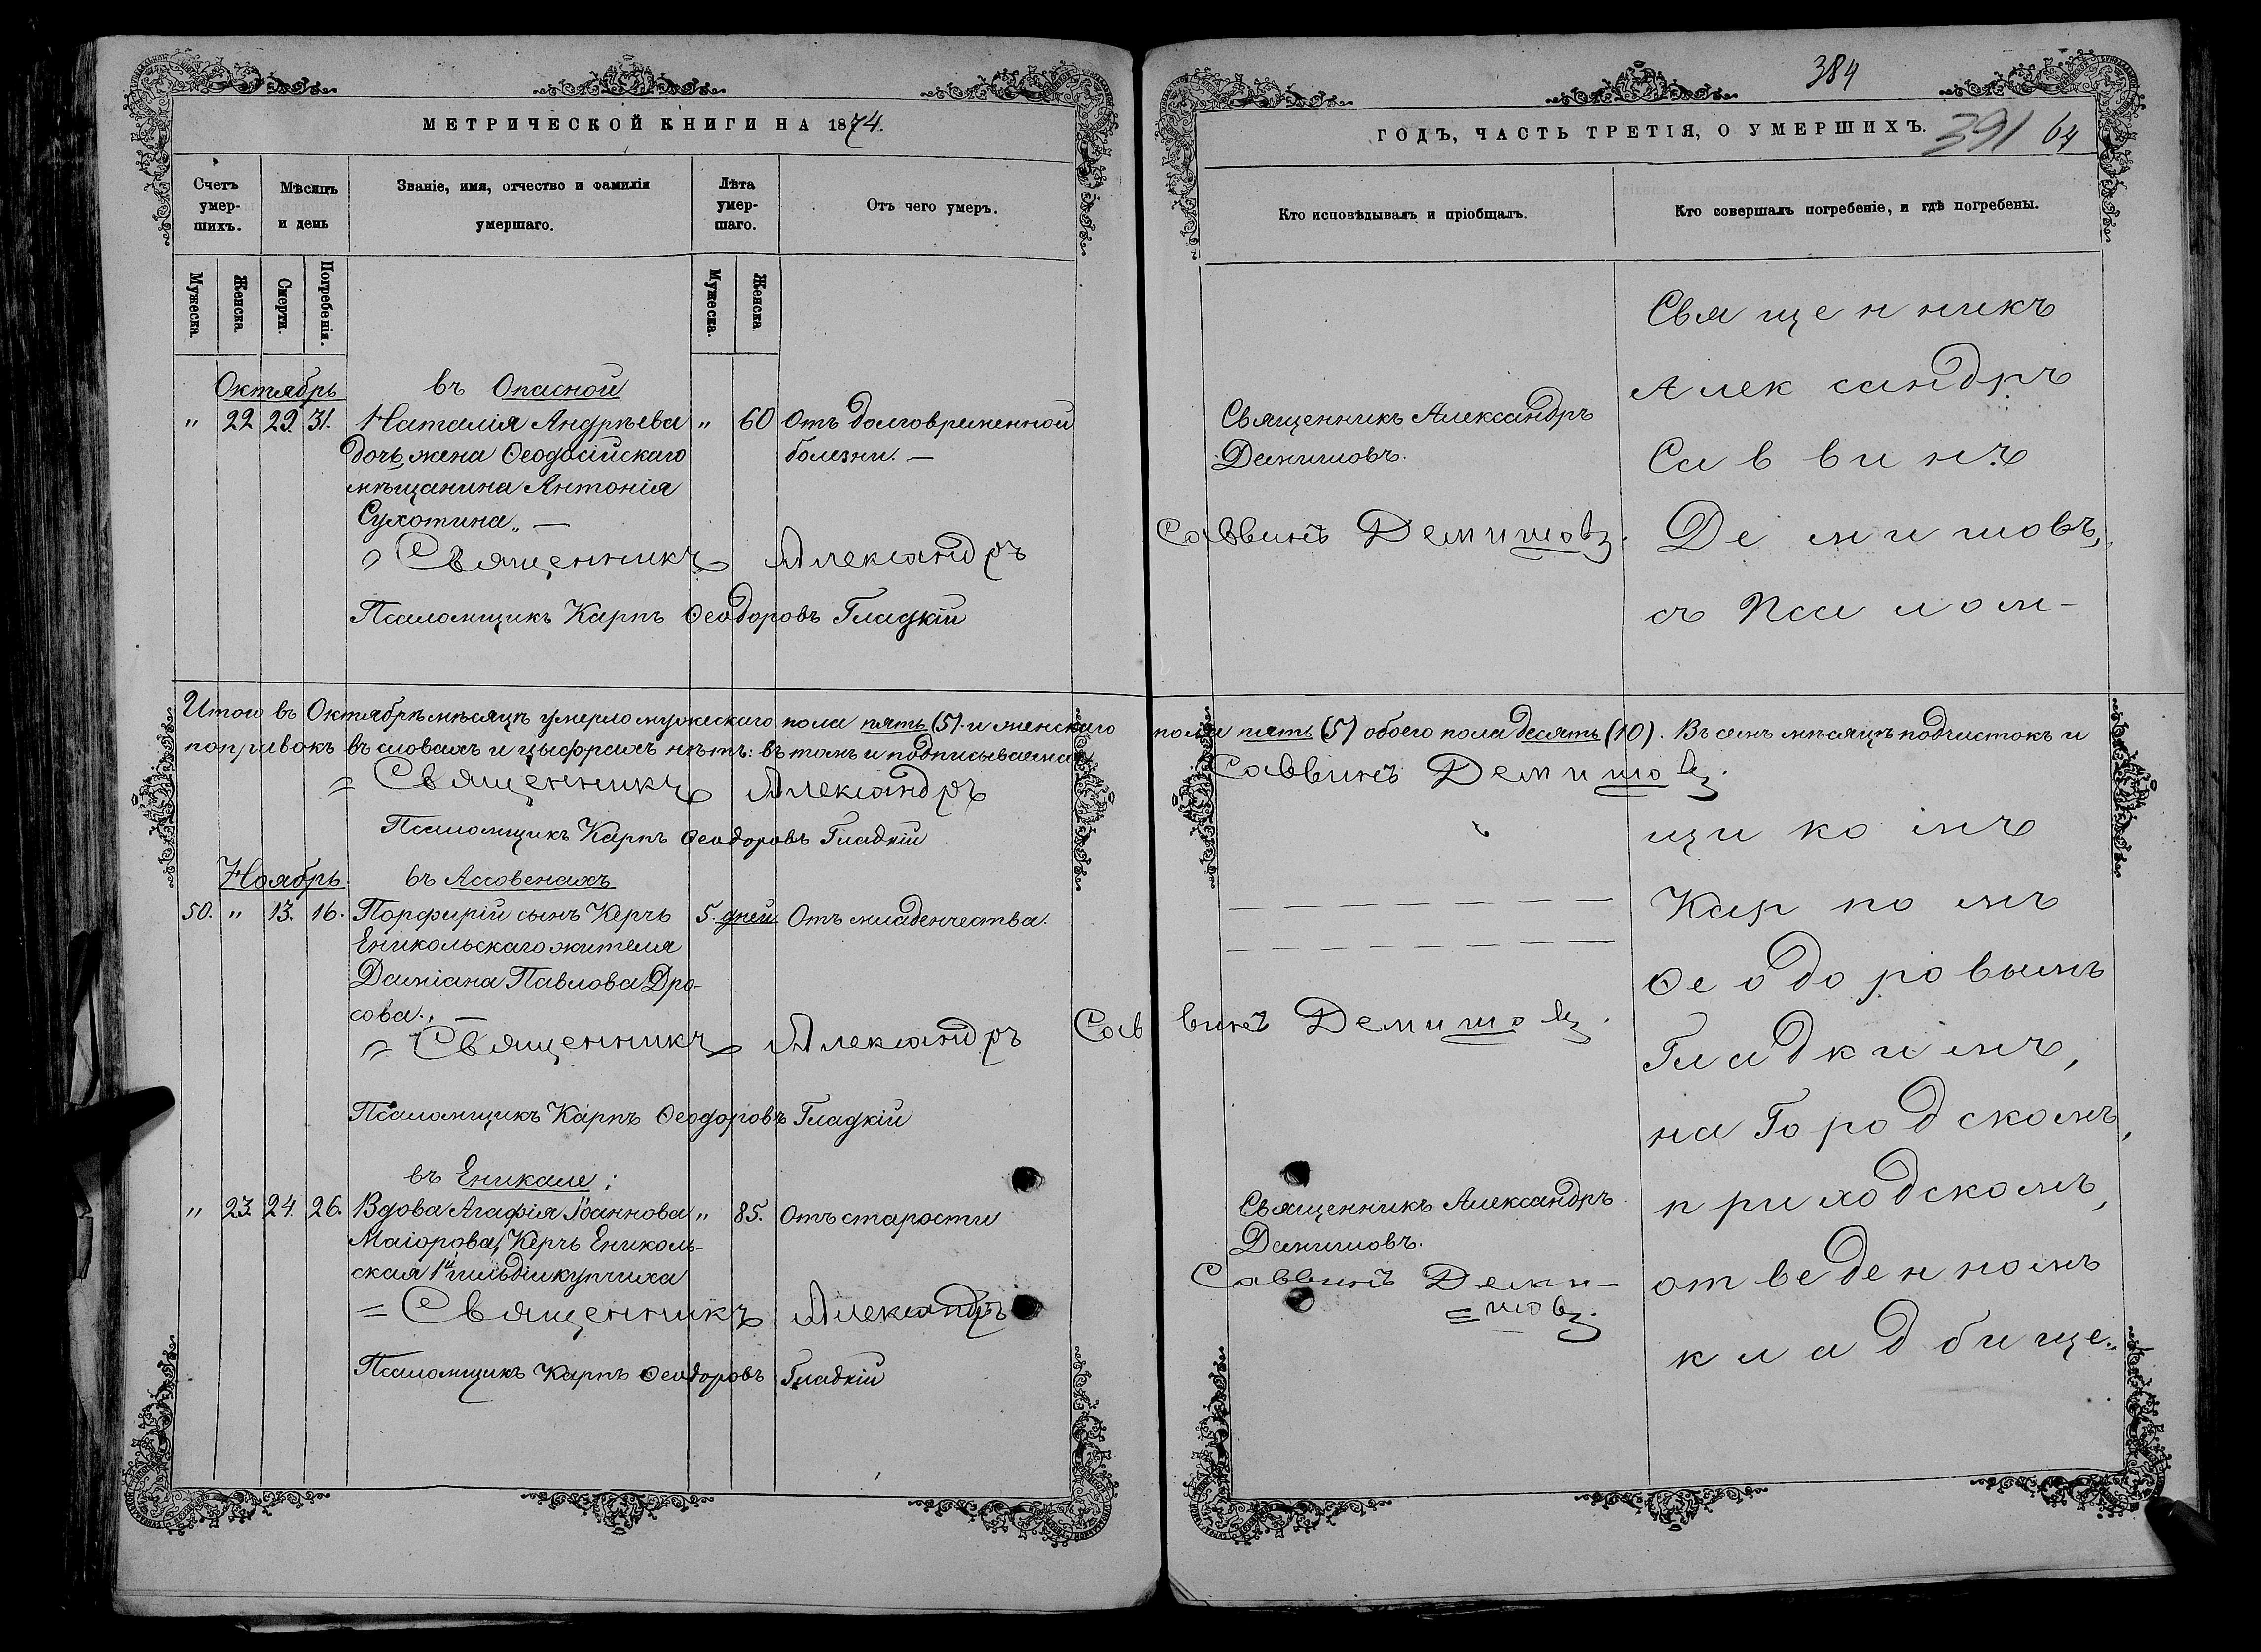 МЕТРИЧЕСКОЙ КНИГИ НА 1874.
Счетъ умер-шихъ.
Мѣсяцъ и день
Званіе, имя, отчество и фамилія умершаго.
Лѣта умер-шаго.
Отъ чего умеръ.
Мужеска.
Женска.
Смерти.
Погребенія.
Мужеска.
Женска.
Октябрь
въ Опасной
" 22 29. 31. Наталія Андрѣева " 60 Отъ долговременной
дочь, жена Ѳеодосійскаго болезни. —
мѣщанина Антонія
Сухотина. —
Священникъ Александръ
Псаломщикъ Карпъ Ѳеодоровъ Гладкій
Итого въ Октябрѣ мѣсяцѣ умерло мужескаго пола пять (5). и женскаго
поправокъ въ словахъ и цыфрахъ нѣтъ: въ томъ и подписываемся
= Священникъ Александръ
Псаломщикъ Карпъ Ѳеодоровъ Гладкій
Ноябрь.
въ Ассовенахъ
50. " 13. 16. Порфирій сынъ Керчь 5. дней. Отъ младенчества.
Еникольскаго жителя
Даміана Павлова Дро-
сова.
= Священникъ Александръ Сав
Псаломщикъ Карпъ Ѳеодоровъ Гладкій
въ Еникале:
" 23. 24. 26. Вдова Агафія Іоаннова " 85. Отъ старости
Маіорова, Керчь Ениколь-
ская 1й гильдіи купчиха
= Священникъ Александръ
Псаломщикъ Карпъ Ѳеодоровъ Гладкій
384
ГОДЪ, ЧАСТЬ ТРЕТІЯ, О УМЕРШИХЪ.
391 64
Кто исповѣдывалъ и пріобщалъ.
Кто совершалъ погребеніе, и гдѣ погребены.
Священникъ Александръ
Демишовъ.
Саввинъ Демишовъ.
пола пять (5) обоего пола десять (10). Въ семъ мѣсяцѣ подчистокъ и
Саввинъ Демишовъ.
винъ Демишовъ.
Священникъ Александръ
Демишовъ.
Саввинъ Деми-
=шовъ.
Священникъ
Александръ
Саввинъ
Демишовъ,
съ Псалом-
щикомъ
Карпомъ
Ѳеодоровымъ
Гладкимъ,
на Городскомъ,
приходскомъ,
отведенномъ
кладбище.